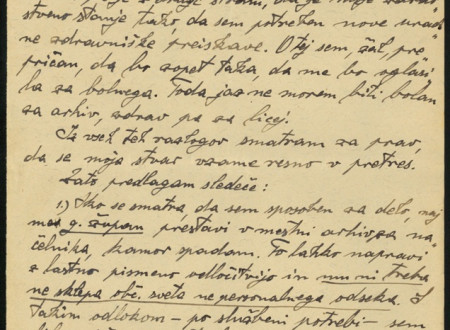 stveno stanje tako, da sem potreben nove urad-
ne zdravniške preiskave. O tej sem, žal, pre
pričan, da bo zopet taka, da me bo oglasi
la za bolnega. Toda jaz ne morem biti bolan
za arhiv, zdrav pa za licej.
Iz vseh teh razlogov smatram za prav,
da se moja stvar vzame resno v pretres.
Zato predlagam sledeče:
1.) Ako se smatra, da sem sposoben za delo, naj
me g. župan prestavi v mestni arhiv za na
čelnika, kamor spadam. To lahko napravi
z lastno pismeno odločitvijo in mu ni treba
ne sklepa obč. sveta ne personalnega odseka. S
takim odlokom – po službeni potrebi – sem